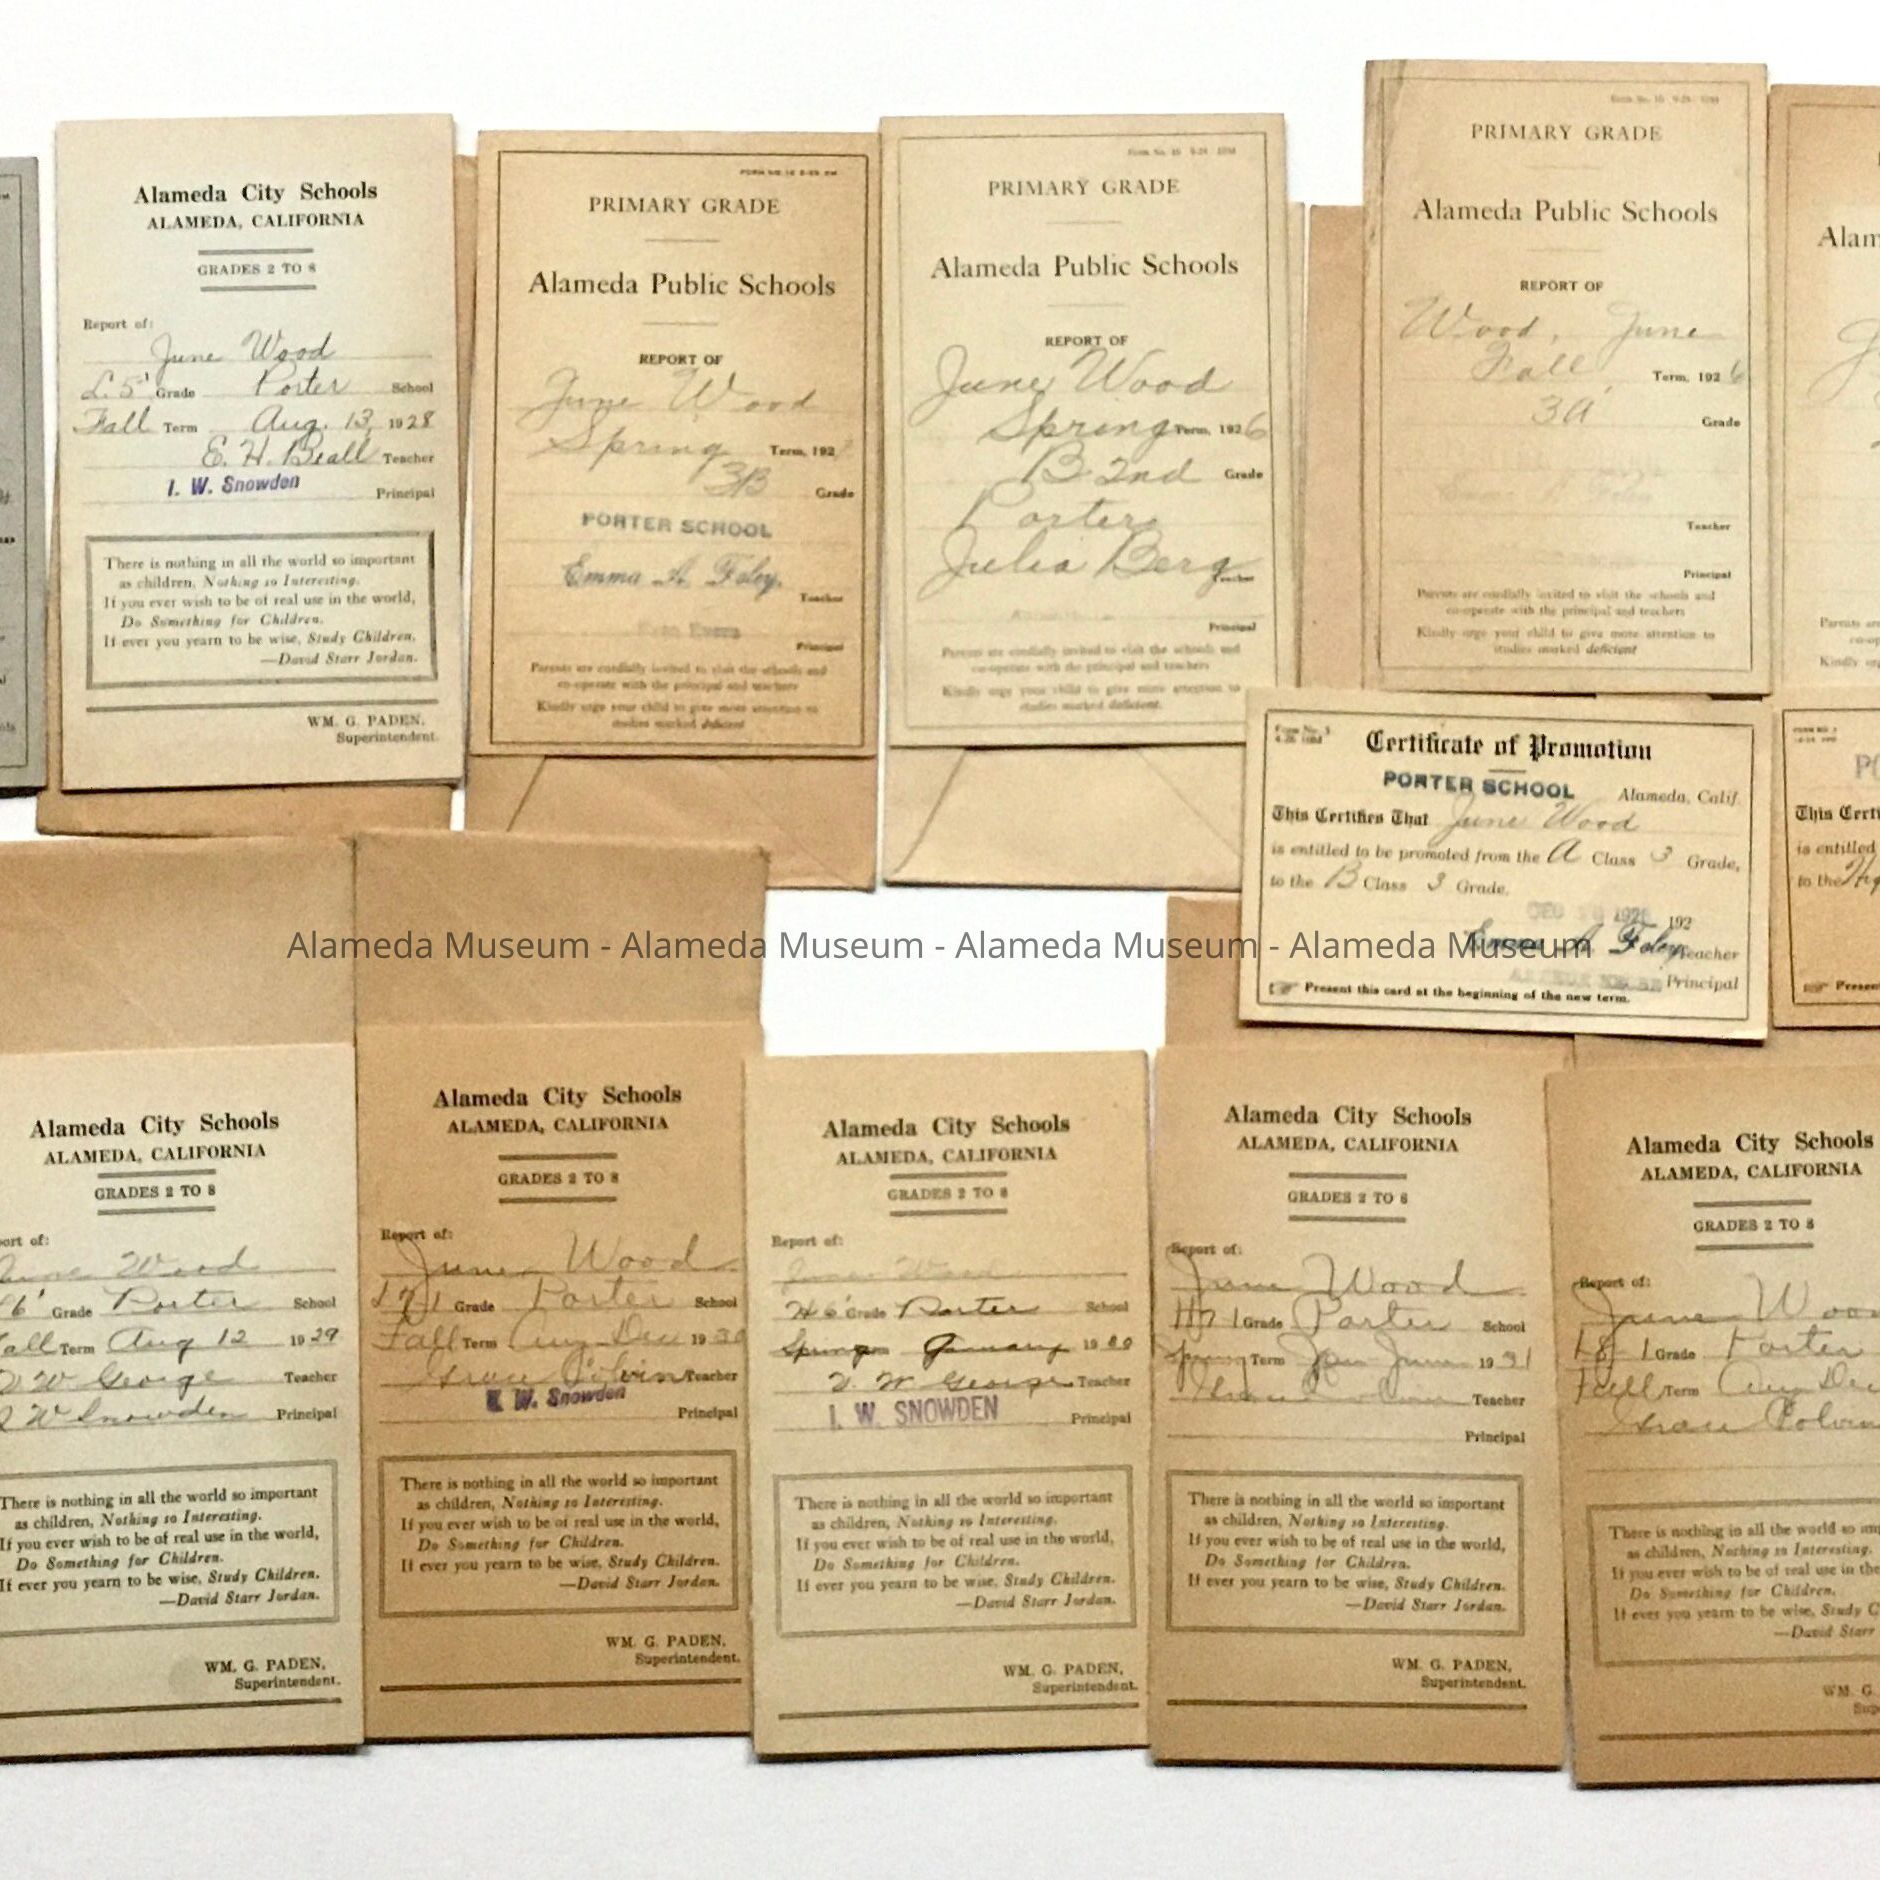 Alameda City Schools
ALAMEDA, CALIFORNIA
GRADES 2 TO 8
Report of:
June Wood
L. 5' Grade Porter School
Fall Term Aug. 13, 1928
E. H. Beall Teacher
I. W. Snowden
Principal
There is nothing in all the world so important
as children, Nothing so Interesting.
If you ever wish to be of real use in the world,
Do Something for Children.
If ever you yearn to be wise, Study Children.
—David Starr Jordan.
WM. G. PADEN,
Superintendent.
PRIMARY GRADE
Alameda Public Schools
REPORT OF
June Wood
Spring Term, 192
3B Grade
PORTER SCHOOL
Emma A. Foley.
Teacher
Principal
Parents are cordially invited to visit the schools and
co-operate with the principal and teachers
Kindly urge your child to give more attention to
studies marked deficient
PRIMARY GRADE
Alameda Public Schools
REPORT OF
June Wood
Spring Term, 1926
B 2nd Grade
Porter
Julia Berg
Teacher
Principal
Parents are cordially invited to visit the schools and
co-operate with the principal and teachers
Kindly urge your child to give more attention to
studies marked deficient.
PRIMARY GRADE
Alameda Public Schools
REPORT OF
Wood, June
Fall Term, 1926
3A Grade
Teacher
Principal
Parents are cordially invited to visit the schools and
co-operate with the principal and teachers
Kindly urge your child to give more attention to
studies marked deficient
Form No. 3
Certificate of Promotion
PORTER SCHOOL
Alameda, Calif.
This Certifies That June Wood
is entitled to be promoted from the A Class 3 Grade,
to the B Class 3 Grade.
192
Emma A. Foley Teacher
Principal
Present this card at the beginning of the new term.
This Certi
is entitled
to the
Alameda Museum - Alameda Museum - Alameda Museum - Alameda Museum
Alameda City Schools
ALAMEDA, CALIFORNIA
GRADES 2 TO 8
ort of:
June Wood
6' Grade Porter School
all Term Aug 12 1929
W George Teacher
W Snowden Principal
There is nothing in all the world so important
as children, Nothing so Interesting.
If you ever wish to be of real use in the world,
Do Something for Children.
If ever you yearn to be wise, Study Children.
—David Starr Jordan.
WM. G. PADEN,
Superintendent.
Alameda City Schools
ALAMEDA, CALIFORNIA
GRADES 2 TO 8
Report of:
June Wood
L 7 1 Grade Porter School
Fall Term Aug Dec 1930
Teacher
W. Snowden
Principal
There is nothing in all the world so important
as children, Nothing so Interesting.
If you ever wish to be of real use in the world,
Do Something for Children.
If ever you yearn to be wise, Study Children.
—David Starr Jordan.
WM. G. PADEN,
Superintendent.
Alameda City Schools
ALAMEDA, CALIFORNIA
GRADES 2 TO 8
Report of:
June Wood
H 6' Grade Porter School
Spring January 19
W George Teacher
I. W. SNOWDEN
Principal
There is nothing in all the world so important
as children, Nothing so Interesting.
If you ever wish to be of real use in the world,
Do Something for Children.
If ever you yearn to be wise, Study Children.
—David Starr Jordan.
WM. G. PADEN,
Superintendent.
Alameda City Schools
ALAMEDA, CALIFORNIA
GRADES 2 TO 8
Report of:
June Wood
H7 1 Grade Porter School
Spring Term Jan June 1931
Teacher
Principal
There is nothing in all the world so important
as children, Nothing so Interesting.
If you ever wish to be of real use in the world,
Do Something for Children.
If ever you yearn to be wise, Study Children.
—David Starr Jordan.
WM. G. PADEN,
Superintendent.
Alameda City Schools
ALAMEDA, CALIFORNIA
GRADES 2 TO 8
Report of:
June Woo
L8 1 Grade Porter
Fall Term Aug Dec
There is nothing in all the world so im
as children, Nothing so Interesting.
If you ever wish to be of real use in the
Do Something for Children.
If ever you yearn to be wise, Study C
—David Starr
WM. G.